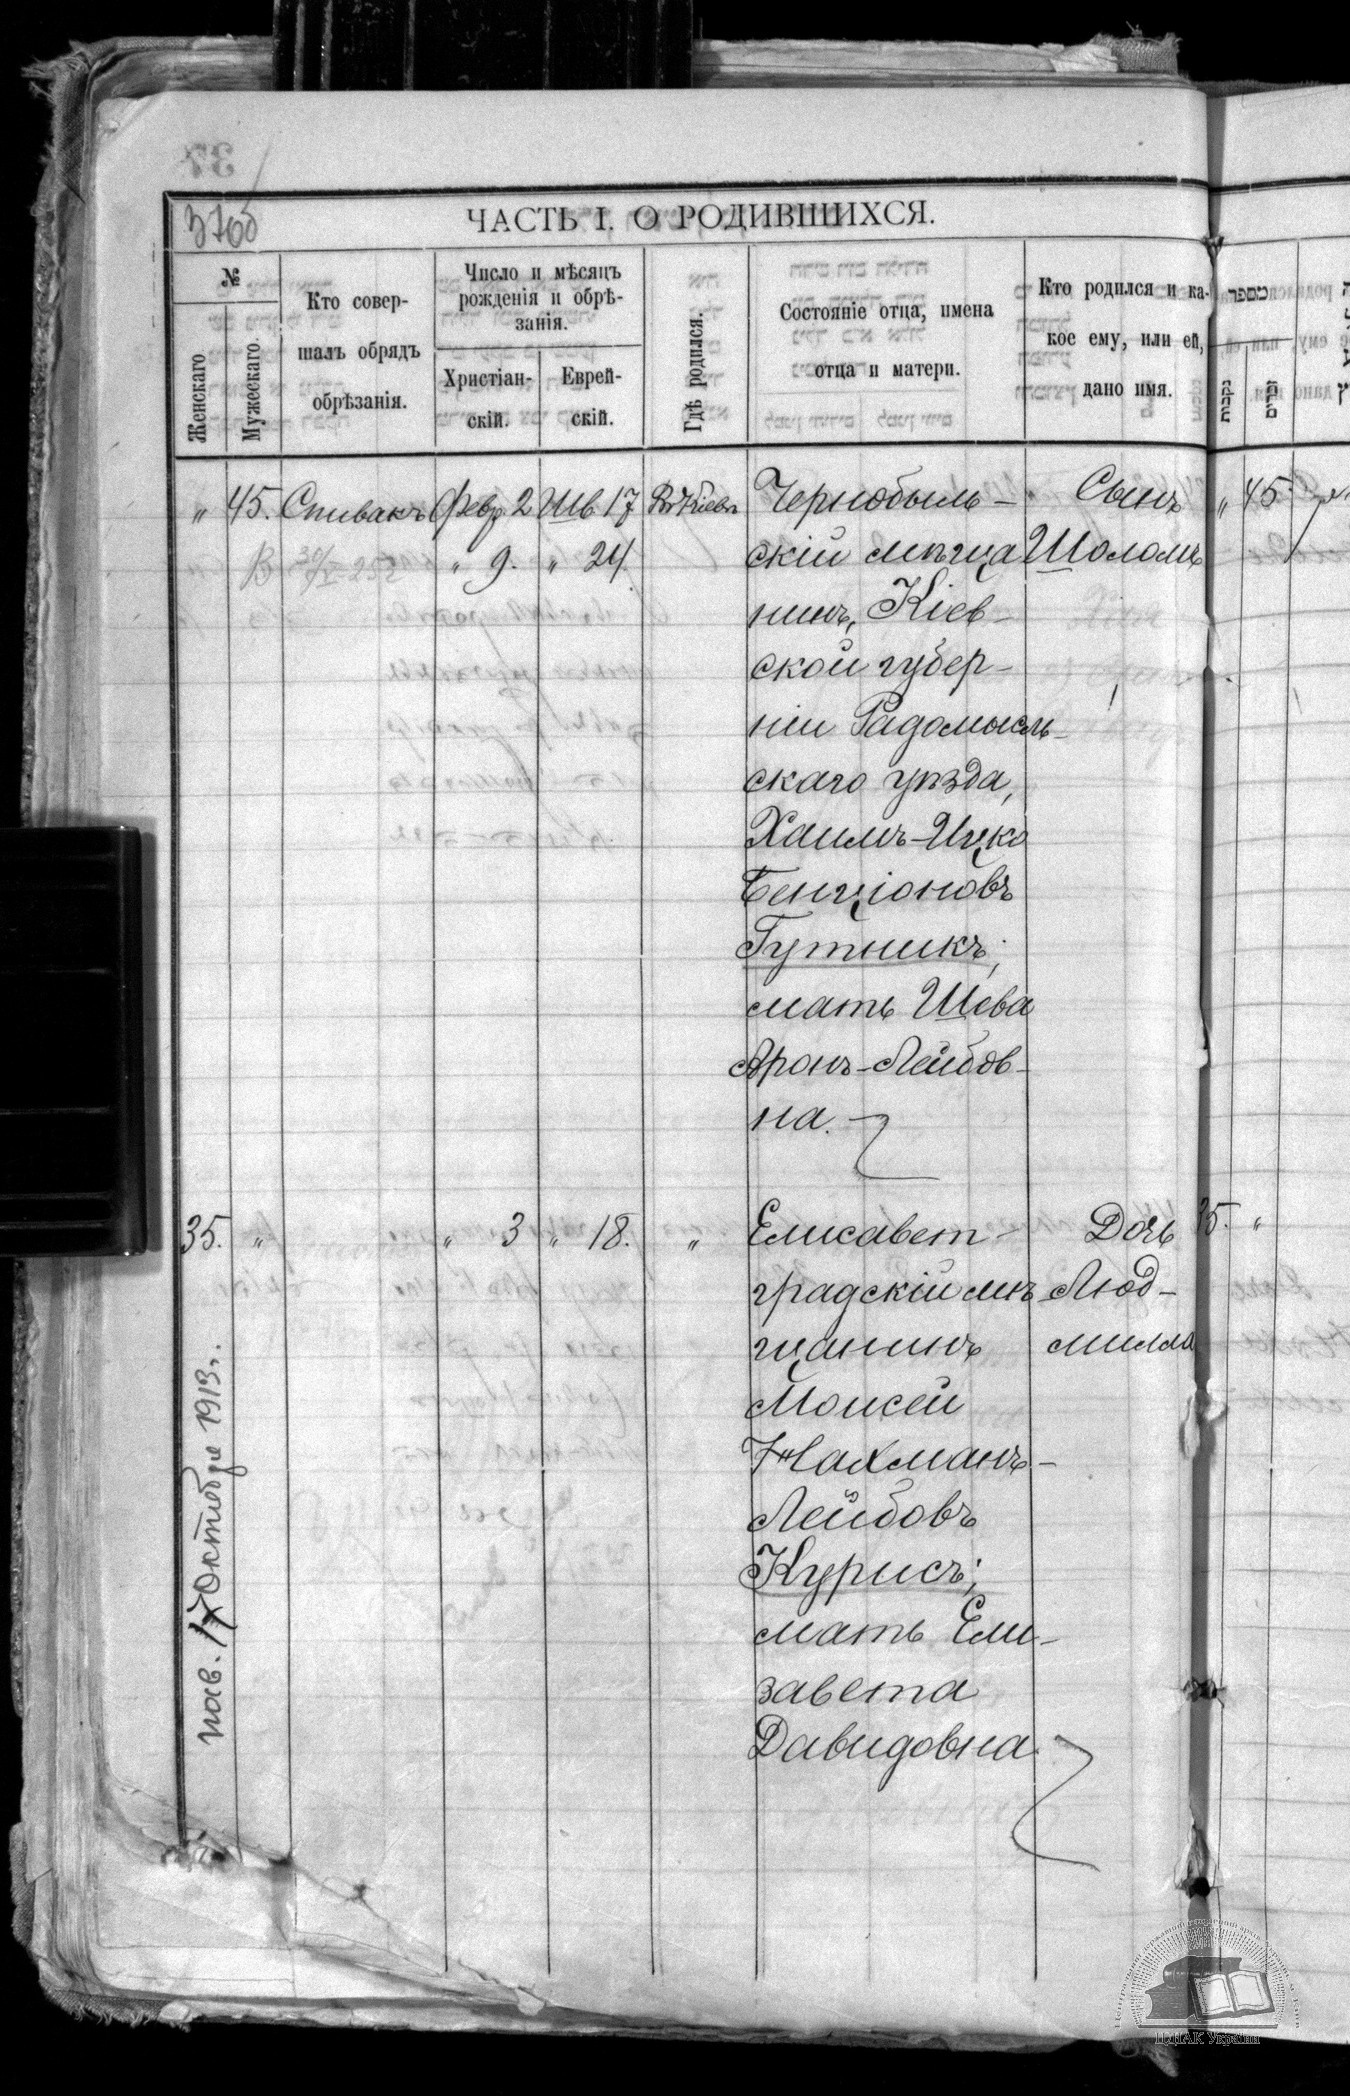 37об
ЧАСТЬ I. О РОДИВШИХСЯ.
№
Женскаго
Мужескаго.
Кто совер-
шалъ обрядъ
обрѣзанія.
Число и мѣсяцъ
рожденія и обрѣ-
занія.
Христіан-
скій.
Еврей-
скій.
Гдѣ родился.
Состояніе отца, имена
отца и матери.
Кто родился и ка-
кое ему, или ей,
дано имя.
מספר
נקבות
זכרים
„ 45. Спивакъ Февр 2 Шв. 17 Въ Кіевѣ Чернобыль- Сынъ „ 45.
„ 9. „ 24 скій мѣща Шоломъ
нинъ, Кіев-
ской губер-
ніи Радомысль-
скаго уѣзда,
Хаимъ-Ицко
Бенціоновъ
Гутникъ;
мать Шева
Аронъ-Лейбов-
на.
35. „ „ 3 „ 18. „ Елисавет- Дочь 35. „
градскій мѣ Люд-
щанинъ милла
Моисей
Нахманъ-
Лейбовъ
Курисъ;
мать Ели-
завета
Давидовна
пов. 17 Октября 1913 г.
ЦДІАК України